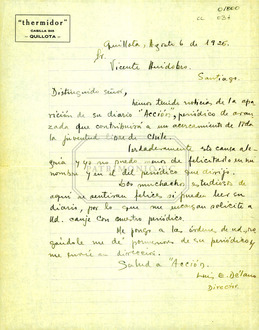 "thermidor"
CASILLA
QUILLOTA
01800
CL 036
Quillota, Agosto 6 de 1925.
Sr.
Vicente Huidobro.
Santiago.
Distinguido señor,
hemos tenido noticia de la apa-
rición de su diario "Acción", periódico de avan-
zada que contribuirá a un acercamiento de toda
la juventud libre de Chile.
Verdaderamente esto causa ale-
gría y yo no puedo menos de felicitarlo en mi
nombre y en el del periódico que dirijo.
Los muchachos estudiosos de
aquí se sentirían felices si pueden leer su
diario, por lo que me encargan solicite a
Ud. canje con nuestro periódico.
Me pongo a la órdenes de ud. ro-
gándole me dé pormenores de su periódico y
me envíe su dirección.
Salud a "Acción".
Luis E. Délano
Director